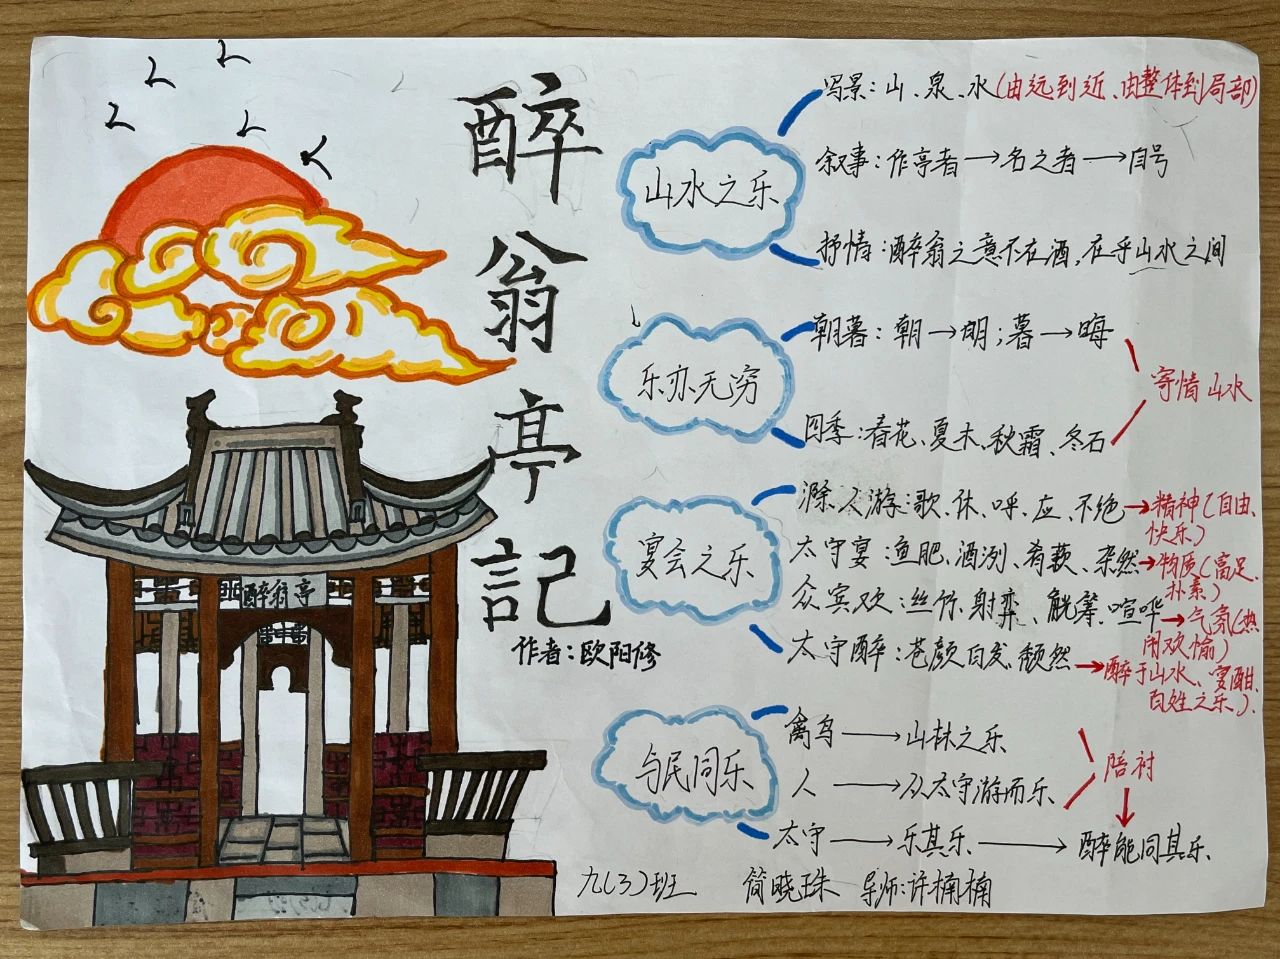 醉翁亭記
作者:欧阳修
醉翁亭
山水之乐
写景:山、泉、水(由远到近、由整体到局部)
叙事:作亭者→名之者→自号
抒情:醉翁之意不在酒,在乎山水之间
乐亦无穷
朝暮:朝→明;暮→晦
四季:春花、夏木、秋霜、冬石
寄情山水
宴会之乐
滁人游:歌、休、呼、应、不绝→精神(自由、
快乐)
太守宴:鱼肥、酒洌、肴蔌、杂然→物质(富足、
朴素)
众宾欢:丝竹、射弈、觥筹、喧哗→气氛(热
闹欢愉)
太守醉:苍颜白发、颓然→醉于山水、宴酣、
百姓之乐).
与民同乐
禽鸟→山林之乐
人→从太守游而乐
陪衬
太守→乐其乐→醉能同其乐
九(3)班 简晓珠 导师:许楠楠